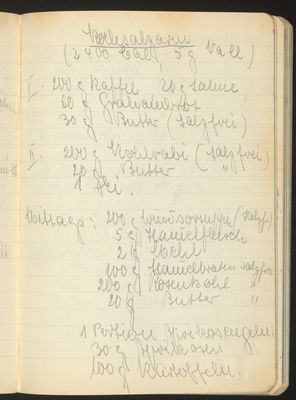 Kochsalzarm
(2400 Cal, 5 g NaCl)
I. 200 g Kaffee 20 g Sahne
60 g Grahambrot
30 g Butter (salzfrei)
II. 200 g Kohlrabi (salzfrei)
20 g Butter "
1 Ei.
Mittags: 200 g
5 g
2 g Mehl
100 g salzfrei
200 g Rosenkohl "
20 g Butter "
1 Portion
30 g Aprikosen
100 g Kartoffeln.